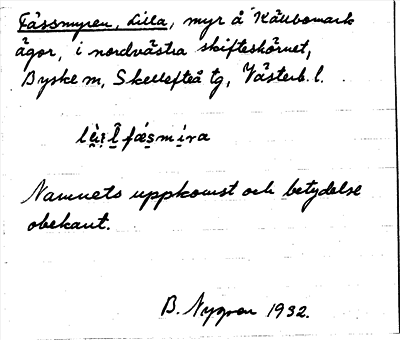 Fässmyren, Lilla, myr å Källbomark
ägor, i nordvästra skifteshörnet,
Byske m, Skellefteå tg, Västerb. l.
Namnets uppkomst och betydelse
obekant.
B. Nygren 1932.